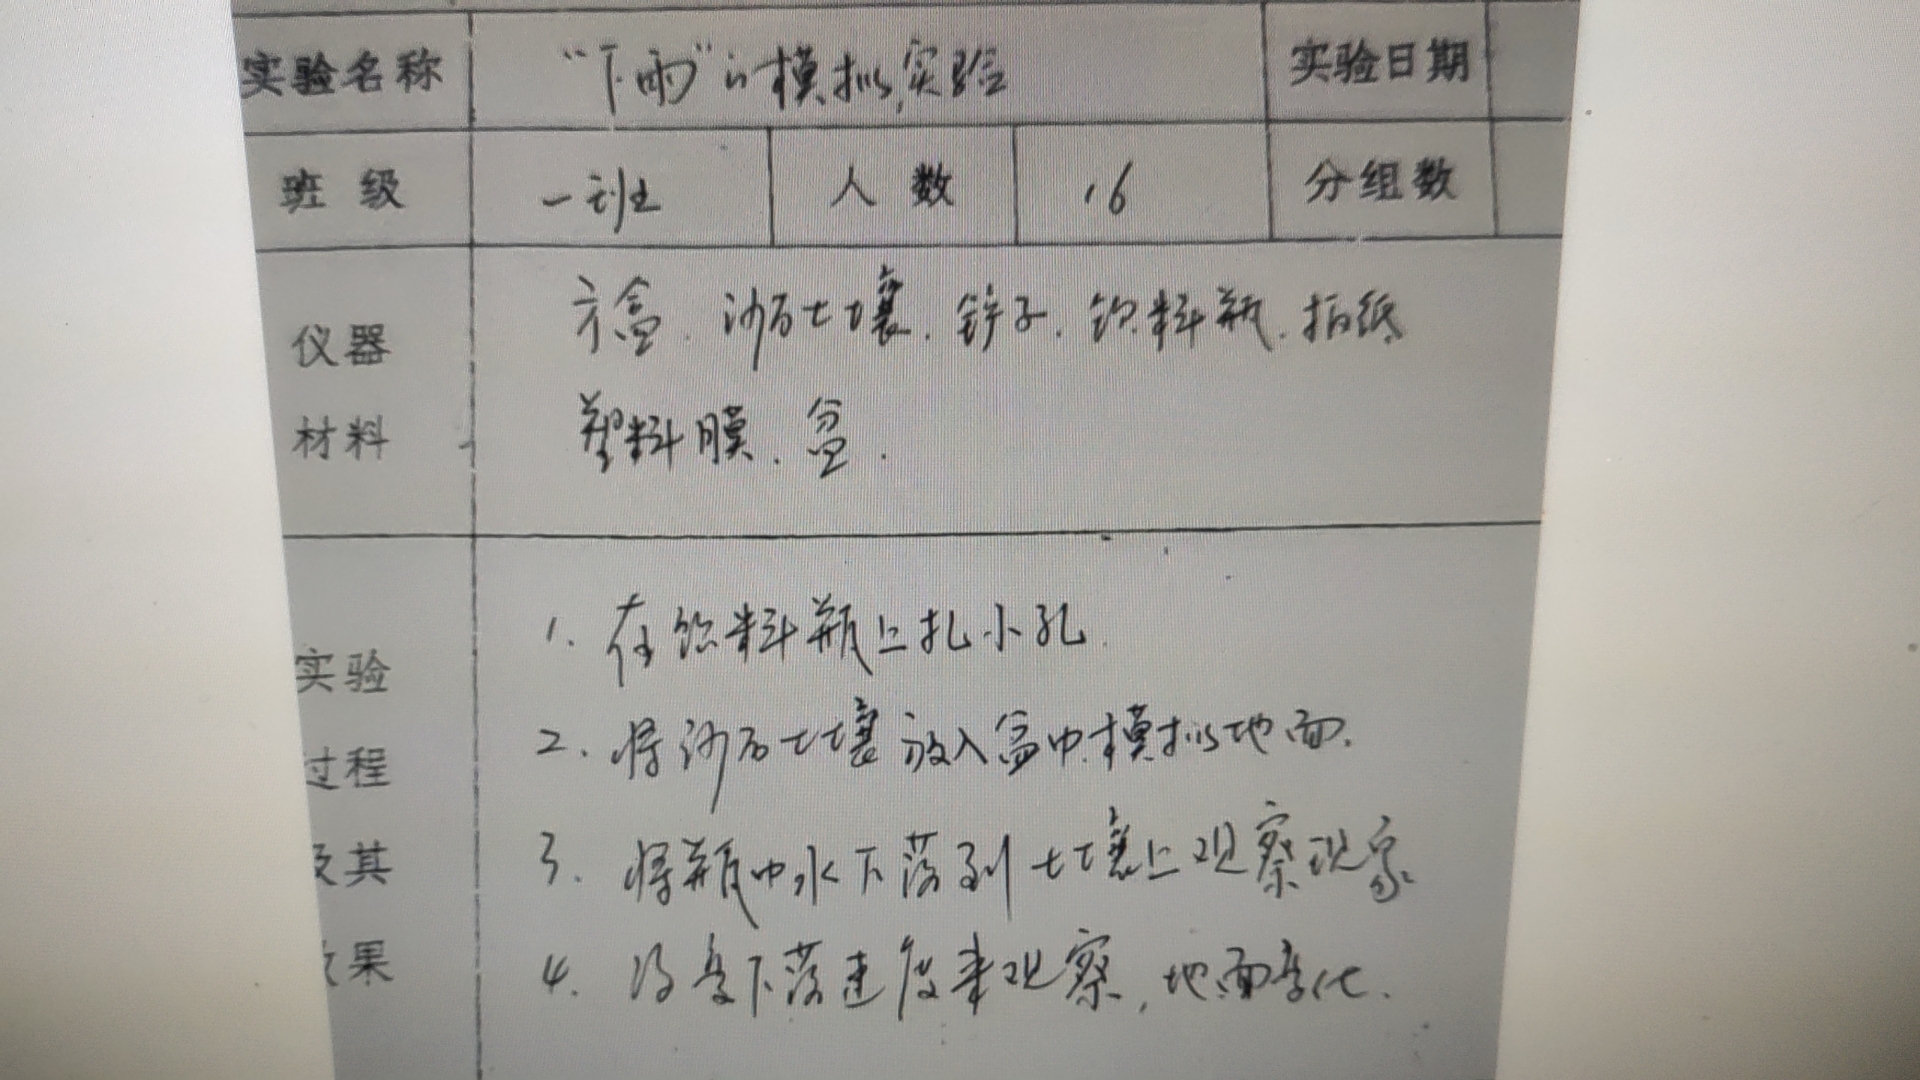 实验名称 “下雨”的模拟实验 实验日期
班级 一班 人数 16 分组数
仪器材料 方盒.沙石土壤.锌子.饮料瓶.报纸
塑料膜.盆.
实验过程及其效果
1. 在饮料瓶上扎小孔.
2. 将沙石土壤放入盒中模拟地面.
3. 将瓶中水下落到土壤上观察现象
4. 改变下落速度来观察,地面变化.